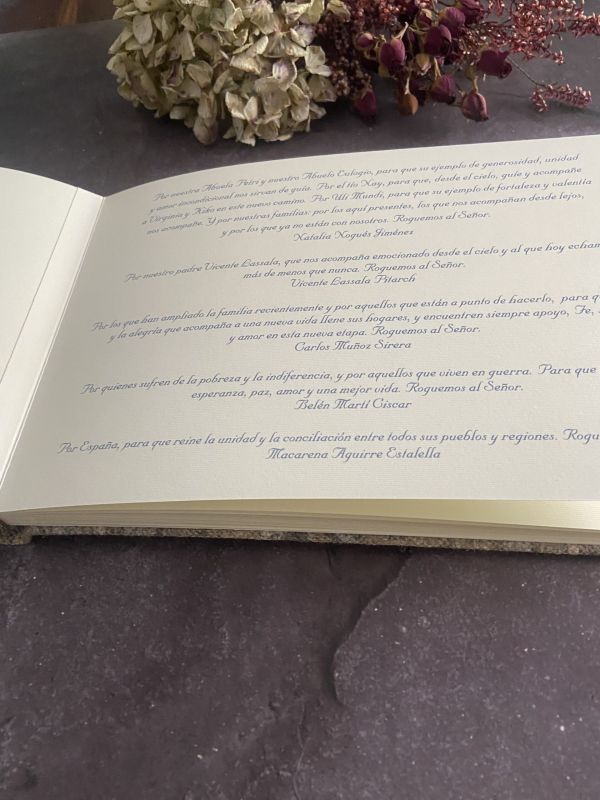 Por nuestra Abuela Petri y nuestro Abuelo Eulogio, para que su ejemplo de generosidad, unidad
y amor incondicional nos sirvan de guía. Por el tío Nay, para que, desde el cielo, guíe y acompañe
a Virginia y Kiko en este nuevo camino. Por Uli Mundi, para que su ejemplo de fortaleza y valentía
nos acompañe. Y por nuestras familias: por los aquí presentes, los que nos acompañan desde lejos,
y por los que ya no están con nosotros. Roguemos al Señor.
Natalia Nogués Jiménez
Por nuestro padre Vicente Lassala, que nos acompaña emocionado desde el cielo y al que hoy echam
más de menos que nunca. Roguemos al Señor.
Vicente Lassala Pitarch
Por los que han ampliado la familia recientemente y por aquellos que están a punto de hacerlo, para q
y la alegría que acompaña a una nueva vida llene sus hogares, y encuentren siempre apoyo, Fe,
y amor en esta nueva etapa. Roguemos al Señor.
Carlos Muñoz Sirera
Por quienes sufren de la pobreza y la indiferencia, y por aquellos que viven en guerra. Para que
esperanza, paz, amor y una mejor vida. Roguemos al Señor.
Belén Martí Ciscar
Por España, para que reine la unidad y la conciliación entre todos sus pueblos y regiones. Rogu
Macarena Aguirre Estalella